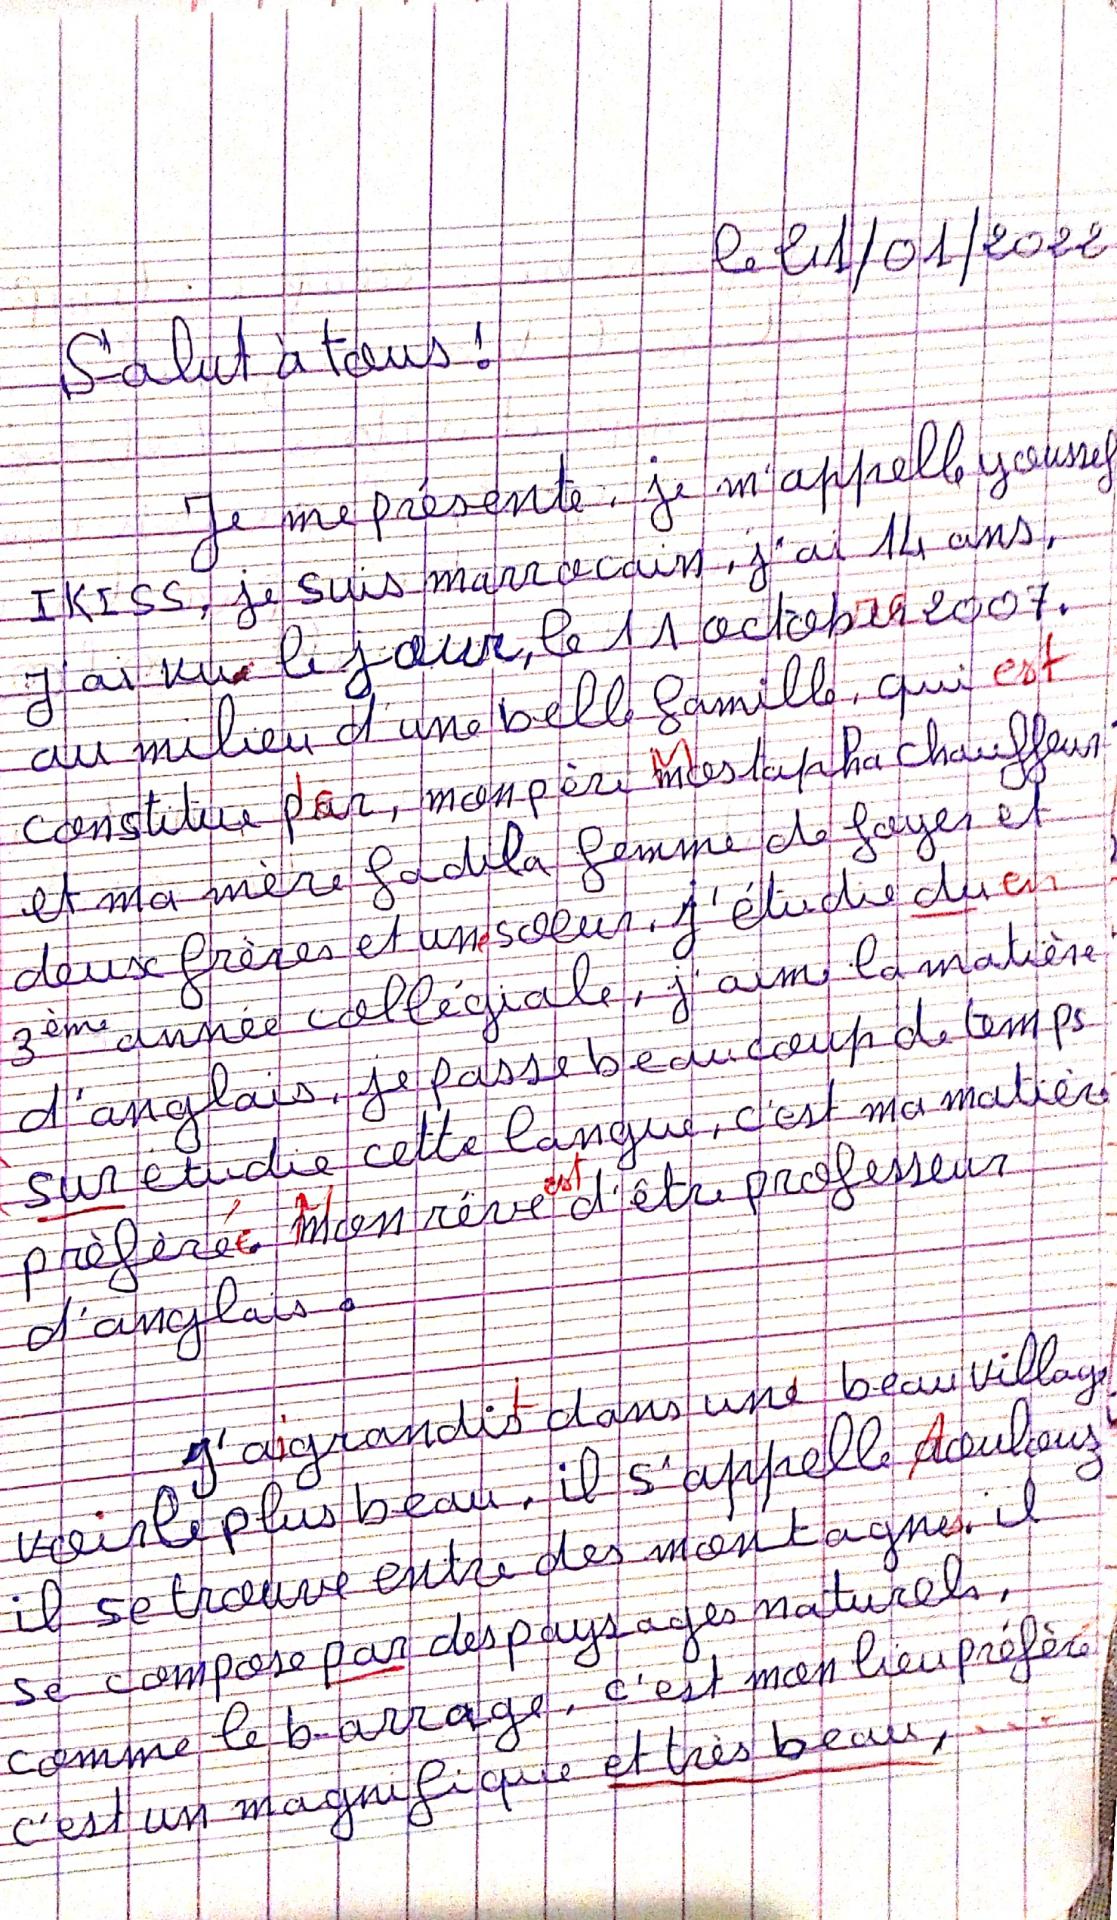 le 21/01/2022
Salut à tous !
Je me présente, je m'appelle youssef
IKISS, je suis marrocain, j'ai 14 ans,
j'ai vu le jour, le 11 octobre 2007.
au milieu d'une belle famille, qui est
constitue par, mon père Mostapha chauffeur
et ma mère fadila femme de foyer et
deux frères et une soeur. j'étudie du en
3ème année collégiale, j'aime la matière
d'anglais, je passe beaucoup de temps
sur étudie cette langue, c'est ma matière
préférée Mon rêve est d'être professeur
d'anglais.
j'ai grandit dans une beau village
voir le plus beau, il s'appelle
il se trouve entre des montagnes. il
se compose par des paysages naturels,
comme le barrage, c'est mon lieu préfère
c'est un magnifique et très beau,